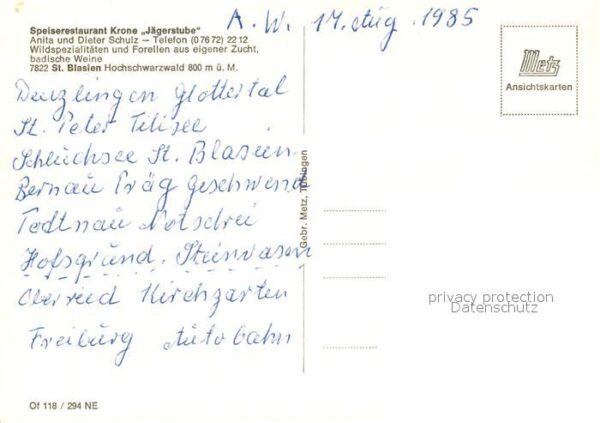 Speiserestaurant Krone „Jägerstube“
Anita und Dieter Schulz — Telefon (07672) 2212
Wildspezialitäten und Forellen aus eigener Zucht,
badische Weine
7822 St. Blasien Hochschwarzwald 800 m ü. M.
A. W. 17. Aug. 1985
Metz
Ansichtskarten
Denzlingen Glottertal
St. Peter Titisee
Schluchsee St. Blasien
Bernau Präg Geschwend
Todtnau Notschrei
Hofsgrund. Steinwasen
Oberried Kirchzarten
Freiburg Autobahn
Gebr. Metz, Tübingen
privacy protection
Datenschutz
Of 118 / 294 NE